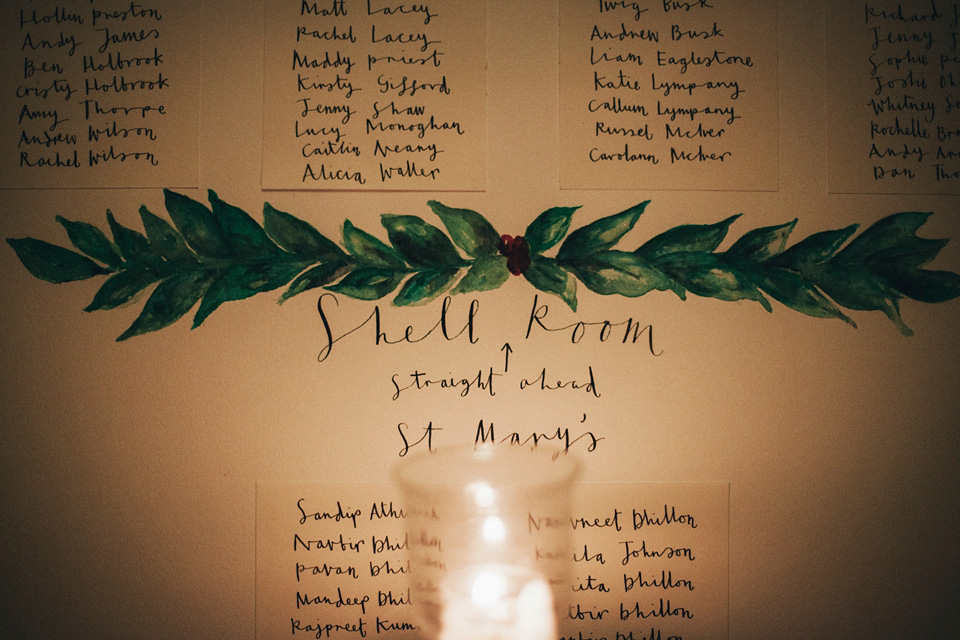 Hollin preston
Andy James
Ben Holbrook
Cristy Holbrook
Amy Thorpe
Andrew Wilson
Rachel Wilson
Matt Lacey
Rachel Lacey
Maddy priest
Kirsty Gifford
Jenny Shaw
Lucy Monoghan
Caitlin Neany
Alicia Waller
Twig Busk
Andrew Busk
Liam Eaglestone
Katie Lympany
Callum Lympany
Russel McIver
Carolann McIver
Richard
Jenny
Sophie
Josh
Whitney
Rochelle
Andy
Dan
Shell Room
↑
straight ahead
St Mary's
Sandip
Navbir
pavan
Mandeep
Rajpreet
Dhillon
Johnson
Dhillon
Dhillon